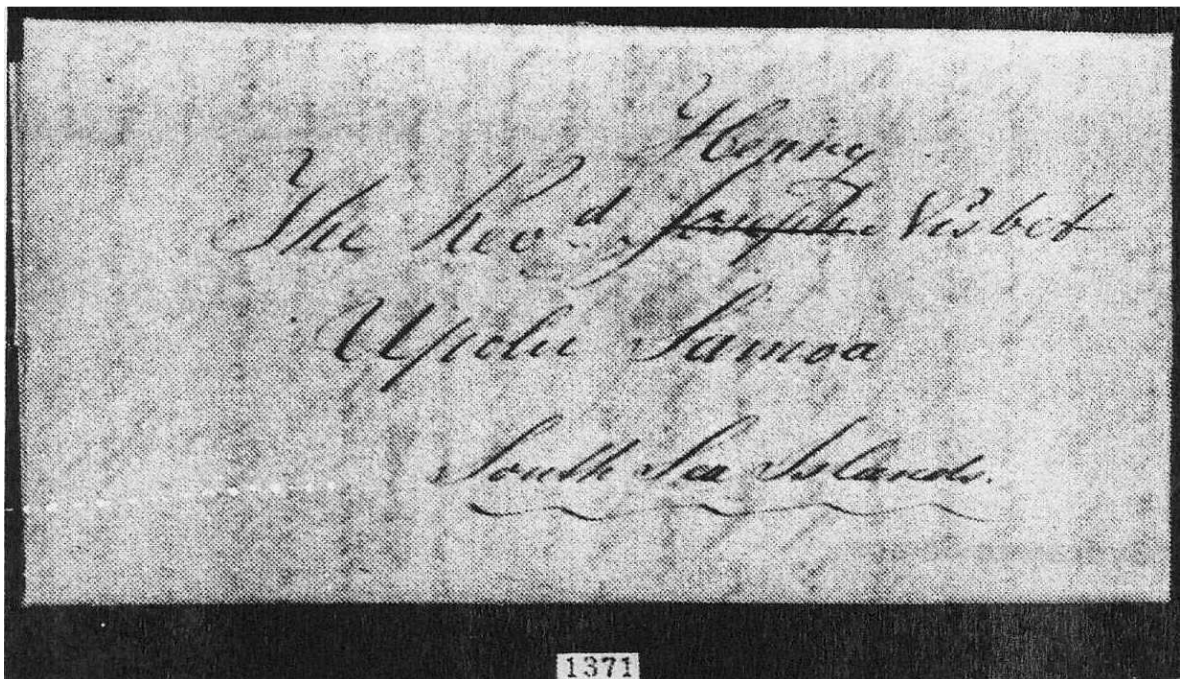 Henry
The Revd Joseph Nisbet
Upolu Samoa
South Sea Islands.
1371